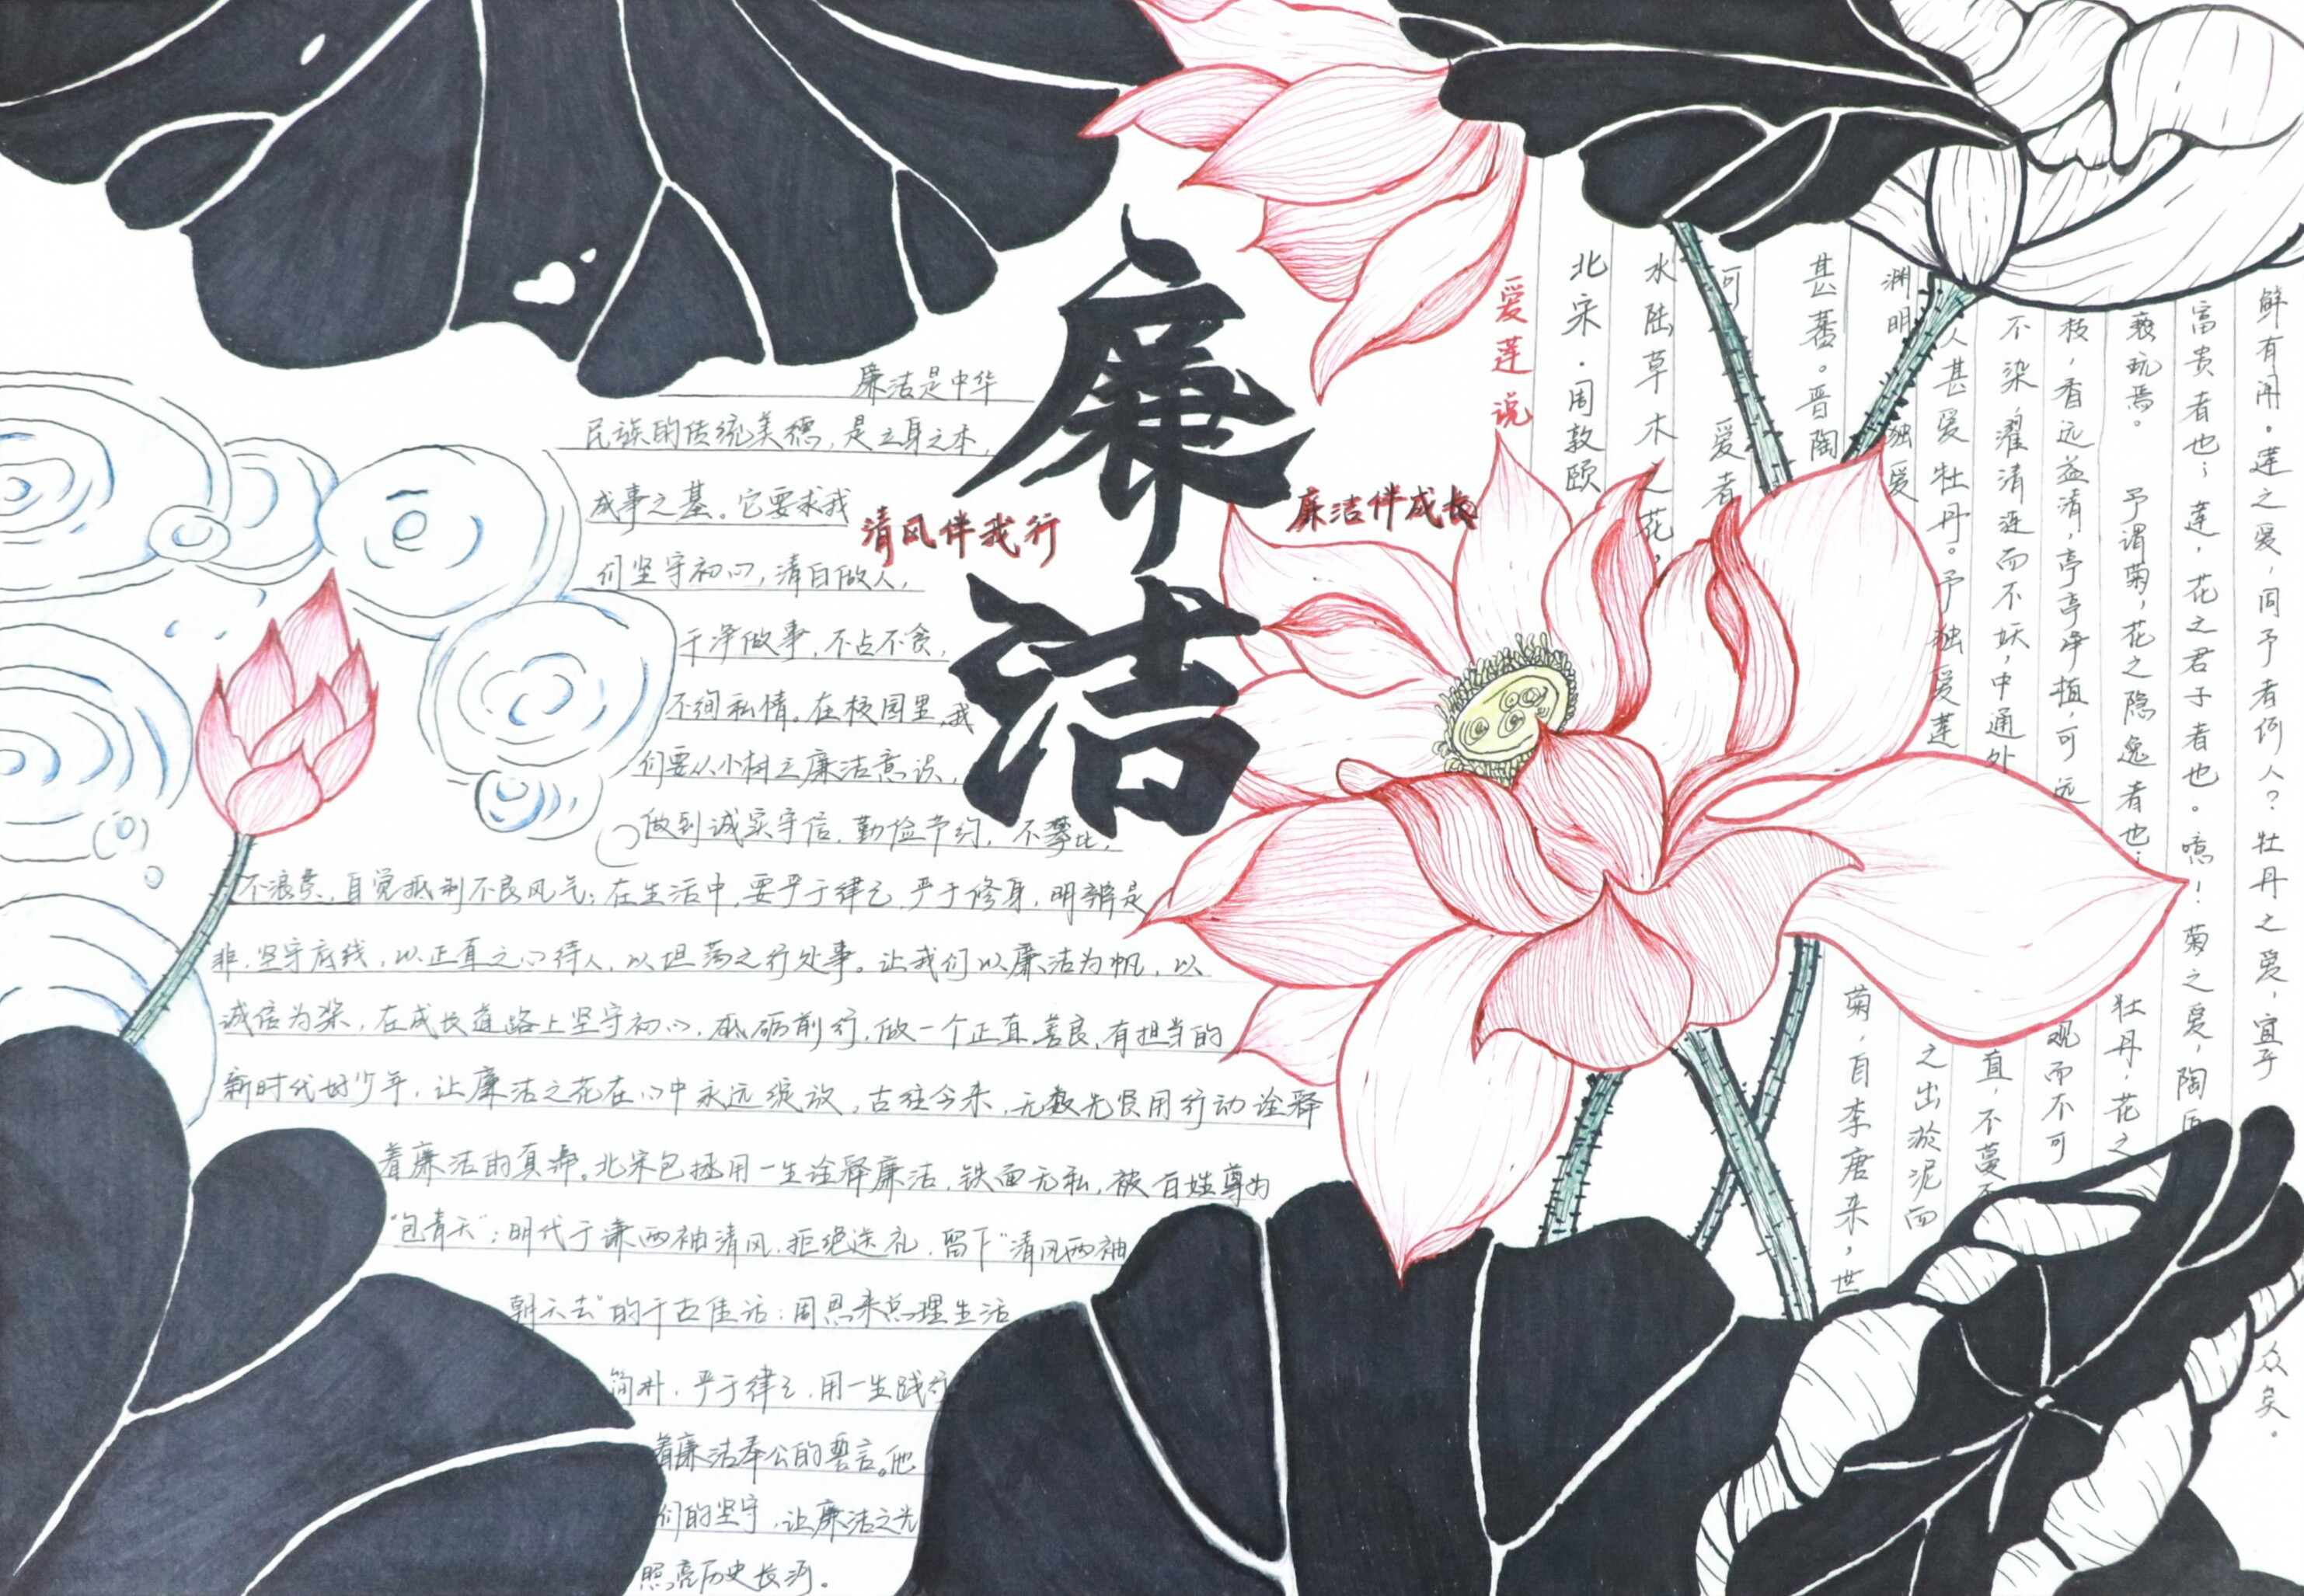 廉洁
清风伴我行
廉洁伴成长
廉洁是中华
民族的传统美德，是立身之本，
成事之基。它要求我
们坚守初心，清白做人，
干净做事，不占不贪，
不徇私情。在校园里，我
们要从小树立廉洁意识，
做到诚实守信，勤俭节约，不攀比，
不浪费，自觉抵制不良风气；在生活中，要严于律己，严于修身，明辨是
非，坚守底线，以正直之心待人，以坦荡之行处事。让我们以廉洁为帆，以
诚信为桨，在成长道路上坚守初心，砥砺前行，做一个正直、善良、有担当的
新时代好少年，让廉洁之花在心中永远绽放。古往今来，无数先贤用行动诠释
着廉洁的真谛。北宋包拯用一生诠释廉洁，铁面无私，被百姓尊为
“包青天”；明代于谦两袖清风，拒绝送礼，留下“清风两袖
朝天去”的千古佳话；周恩来总理生活
简朴，严于律己，用一生践行
着廉洁奉公的誓言。他
们的坚守，让廉洁之光
照亮历史长河。
爱莲说
北宋·周敦颐
水陆草木之花，
可爱者
甚蕃。晋陶
渊明独爱
菊，自李唐来，世
人甚爱牡丹。予独爱莲
之出淤泥而
不染濯清涟而不妖，中通外
直，不蔓不
枝，香远益清，亭亭净植，可远
观而不可
亵玩焉。予谓菊，花之隐逸者也；
牡丹，花之
富贵者也；莲，花之君子者也。噫！菊之爱，陶后
鲜有闻。莲之爱，同予者何人？牡丹之爱，宜乎
众矣。